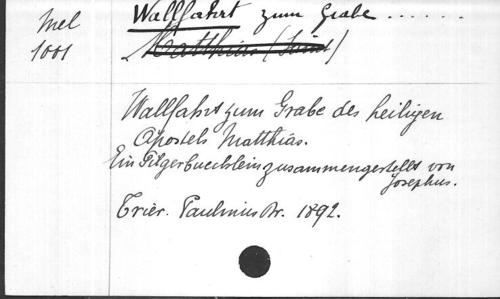 Mel
1001
Wallfahrt zum Grabe ......
Matthias (Saint)
Wallfahrt zum Grabe des heiligen
Apostels Matthias.
Ein Pilgerbuechlein zusammengestellt von
Josephus.
Trier. Paulinus Dr. 1892.